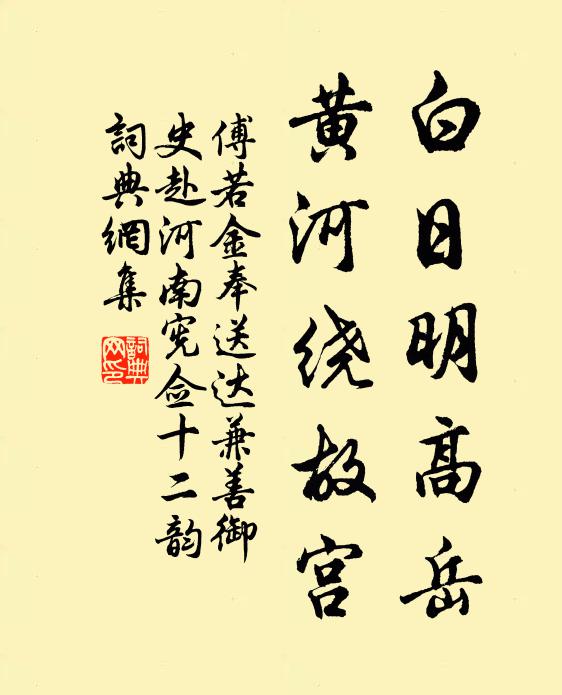 白日明高岳
黄河绕故宫
傅若金奉送达兼善御
史赴河南宪佥十二韵
詞典網集
詞典網印